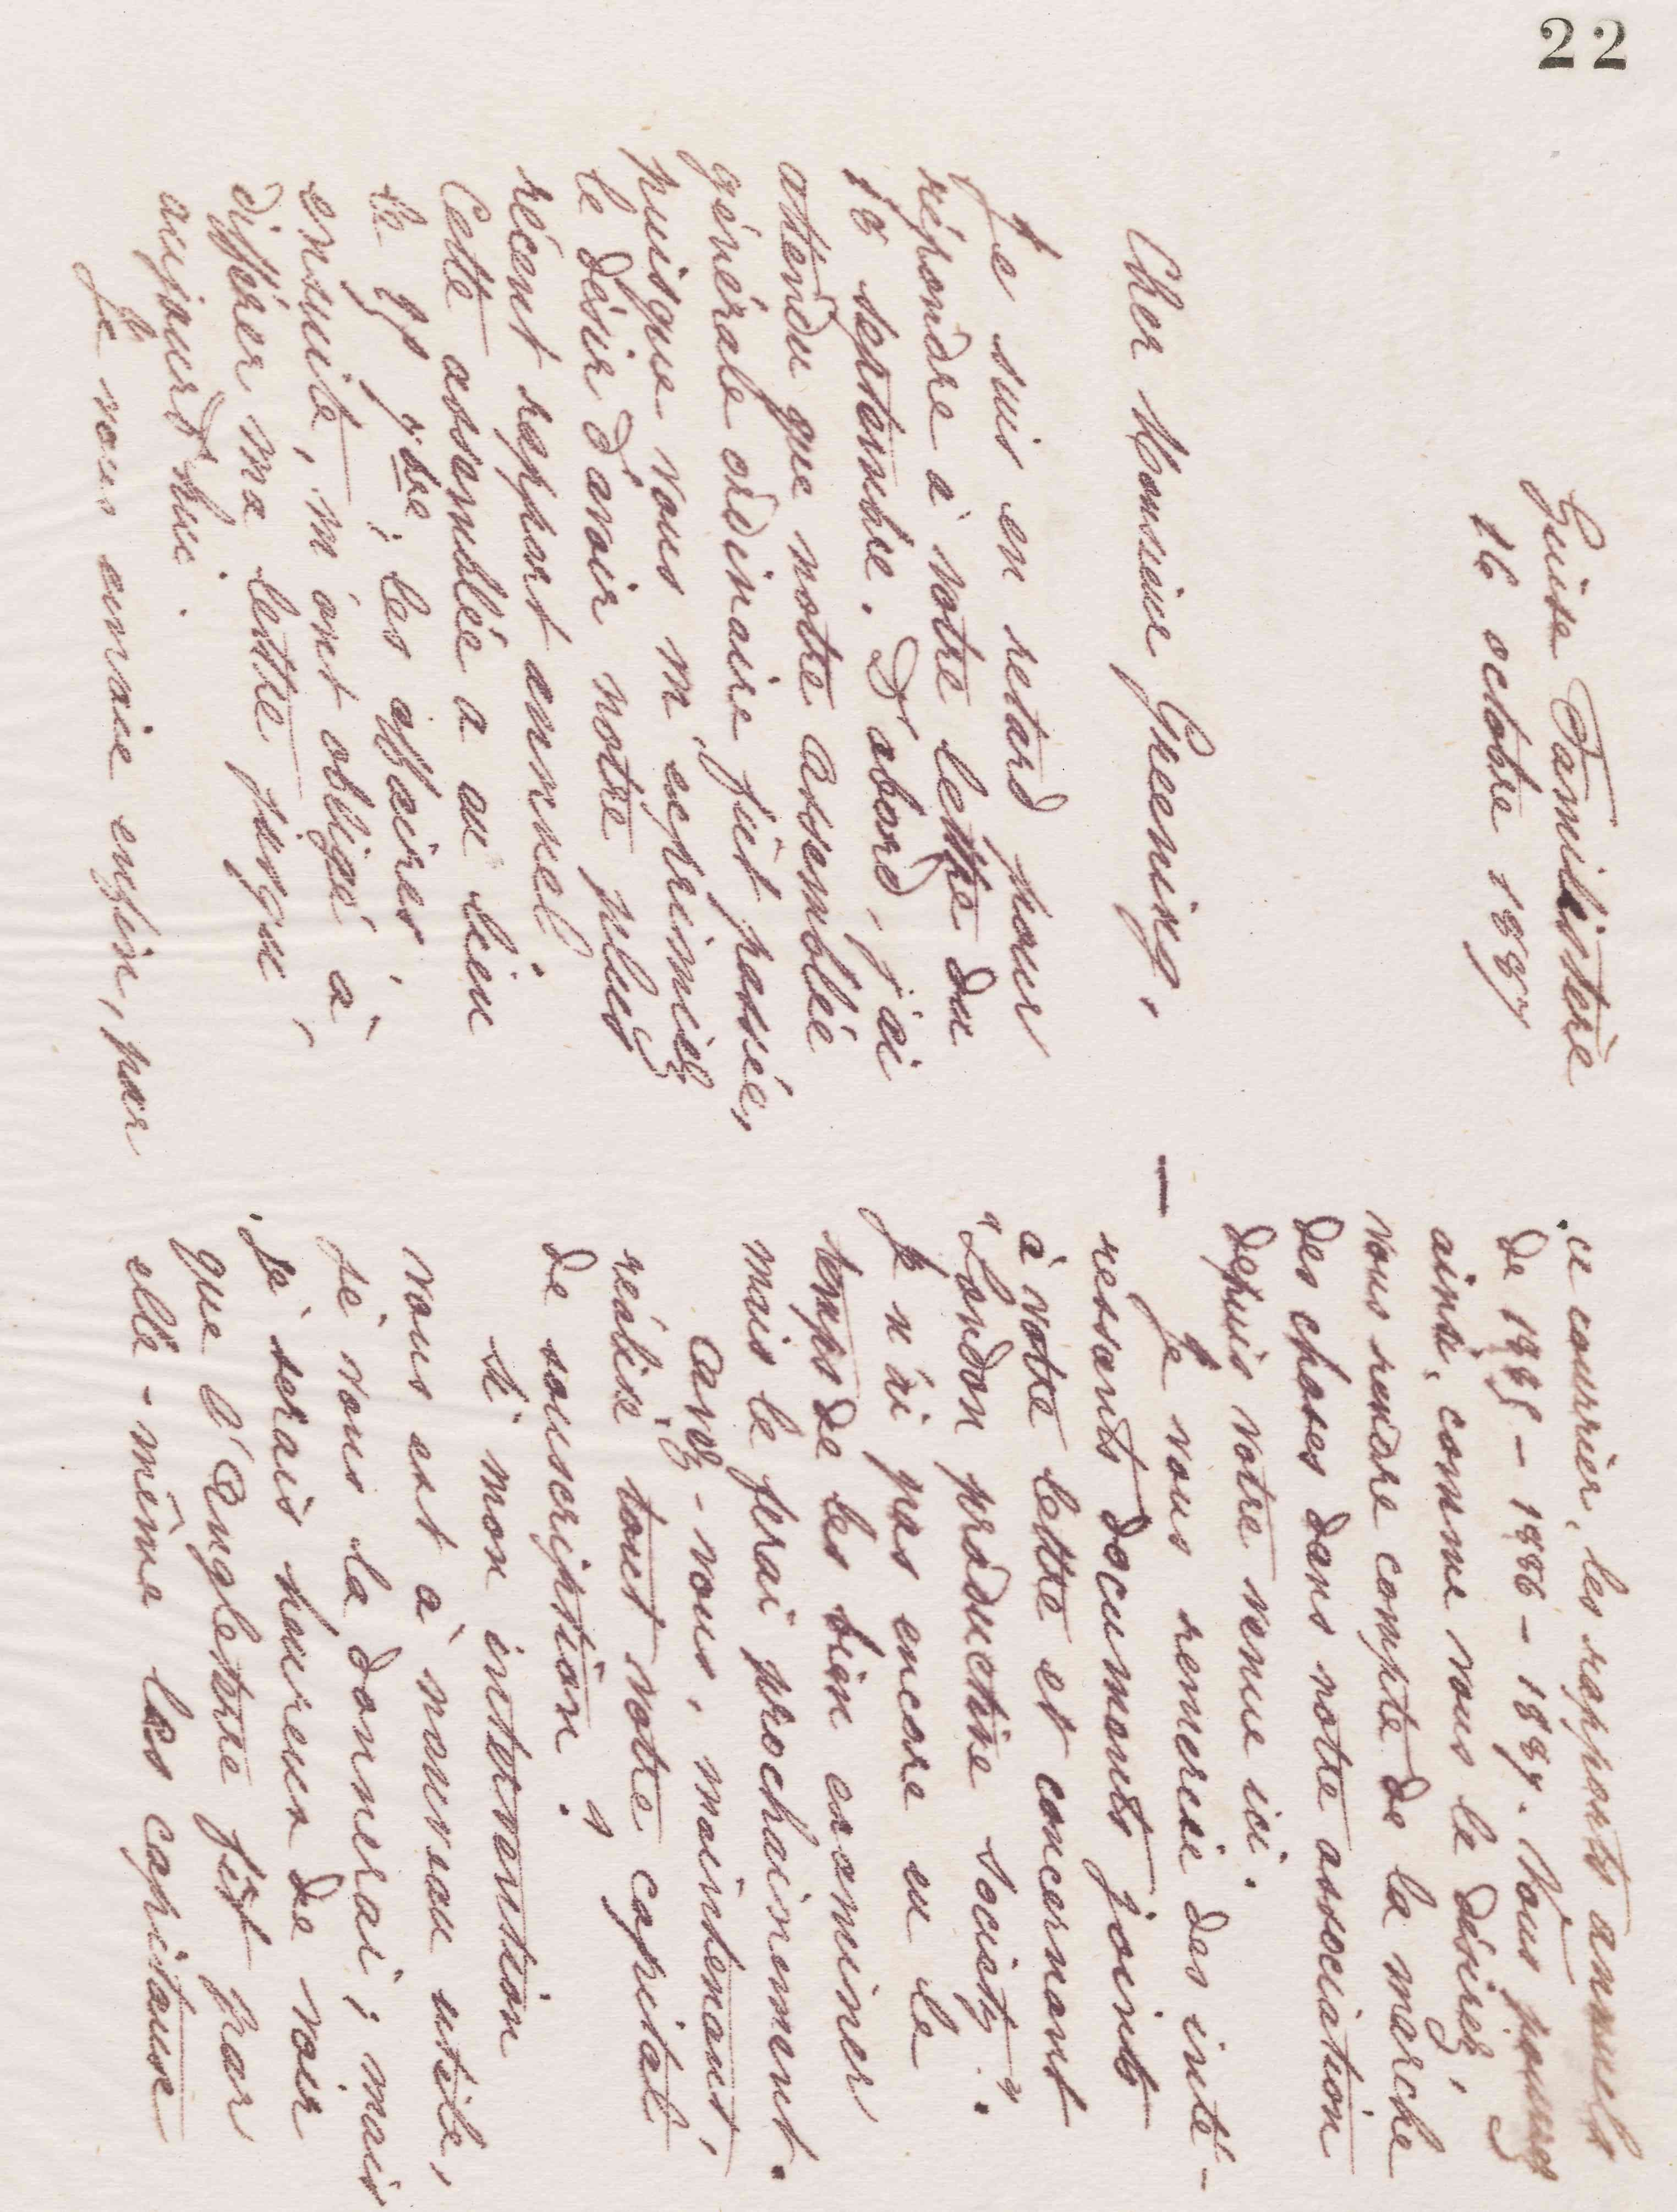 22
Guise Familistère
16 octobre 1887
Cher Monsieur Greening,
Je suis en retard pour
répondre à votre lettre du
16 septembre. D'abord, j'ai
attendu que notre assemblée
générale ordinaire fût passée,
puisque vous m'exprimiez
le désir d'avoir notre plus
récent rapport annuel.
Cette assemblée a eu lieu
le 2 8bre; les affaires,
ensuite, m'ont obligé à
différer ma lettre jusqu'
aujourd'hui.
Je vous envoie enfin, par
ce courrier, les rapports annuels
de 1885 - 1886 - 1887. Vous pourrez
ainsi, comme vous le désirez,
vous rendre compte de la marche
des choses dans notre association
depuis votre venue ici.
— Je vous remercie des inté-
ressants documents joints
à votre lettre et concernant
"London productive society".
Je n'ai pas encore eu le
temps de les bien examiner
mais le ferai prochainement.
Avez-vous, maintenant,
réalisé tout votre capital
de souscription?
Si mon intervention
vous est à nouveau utile,
je vous la donnerai; mais
je serais heureux de voir
que l'Angleterre fît par
elle-même les capitaux